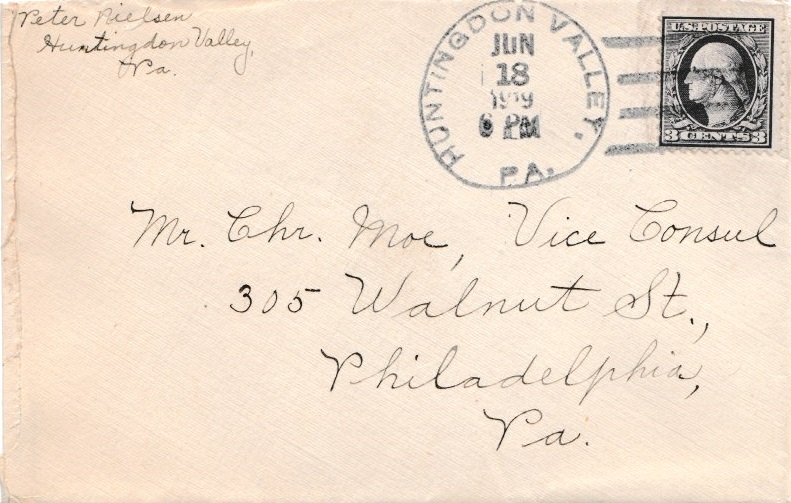 Peter Nielsen
Huntingdon Valley,
Pa.
HUNTINGDON VALLEY,
JUN
18
1919
6 PM
PA.
U.S. POSTAGE
3 CENTS 3
Mr. Chr. Moe, Vice Consul
305 Walnut St.,
Philadelphia,
Pa.